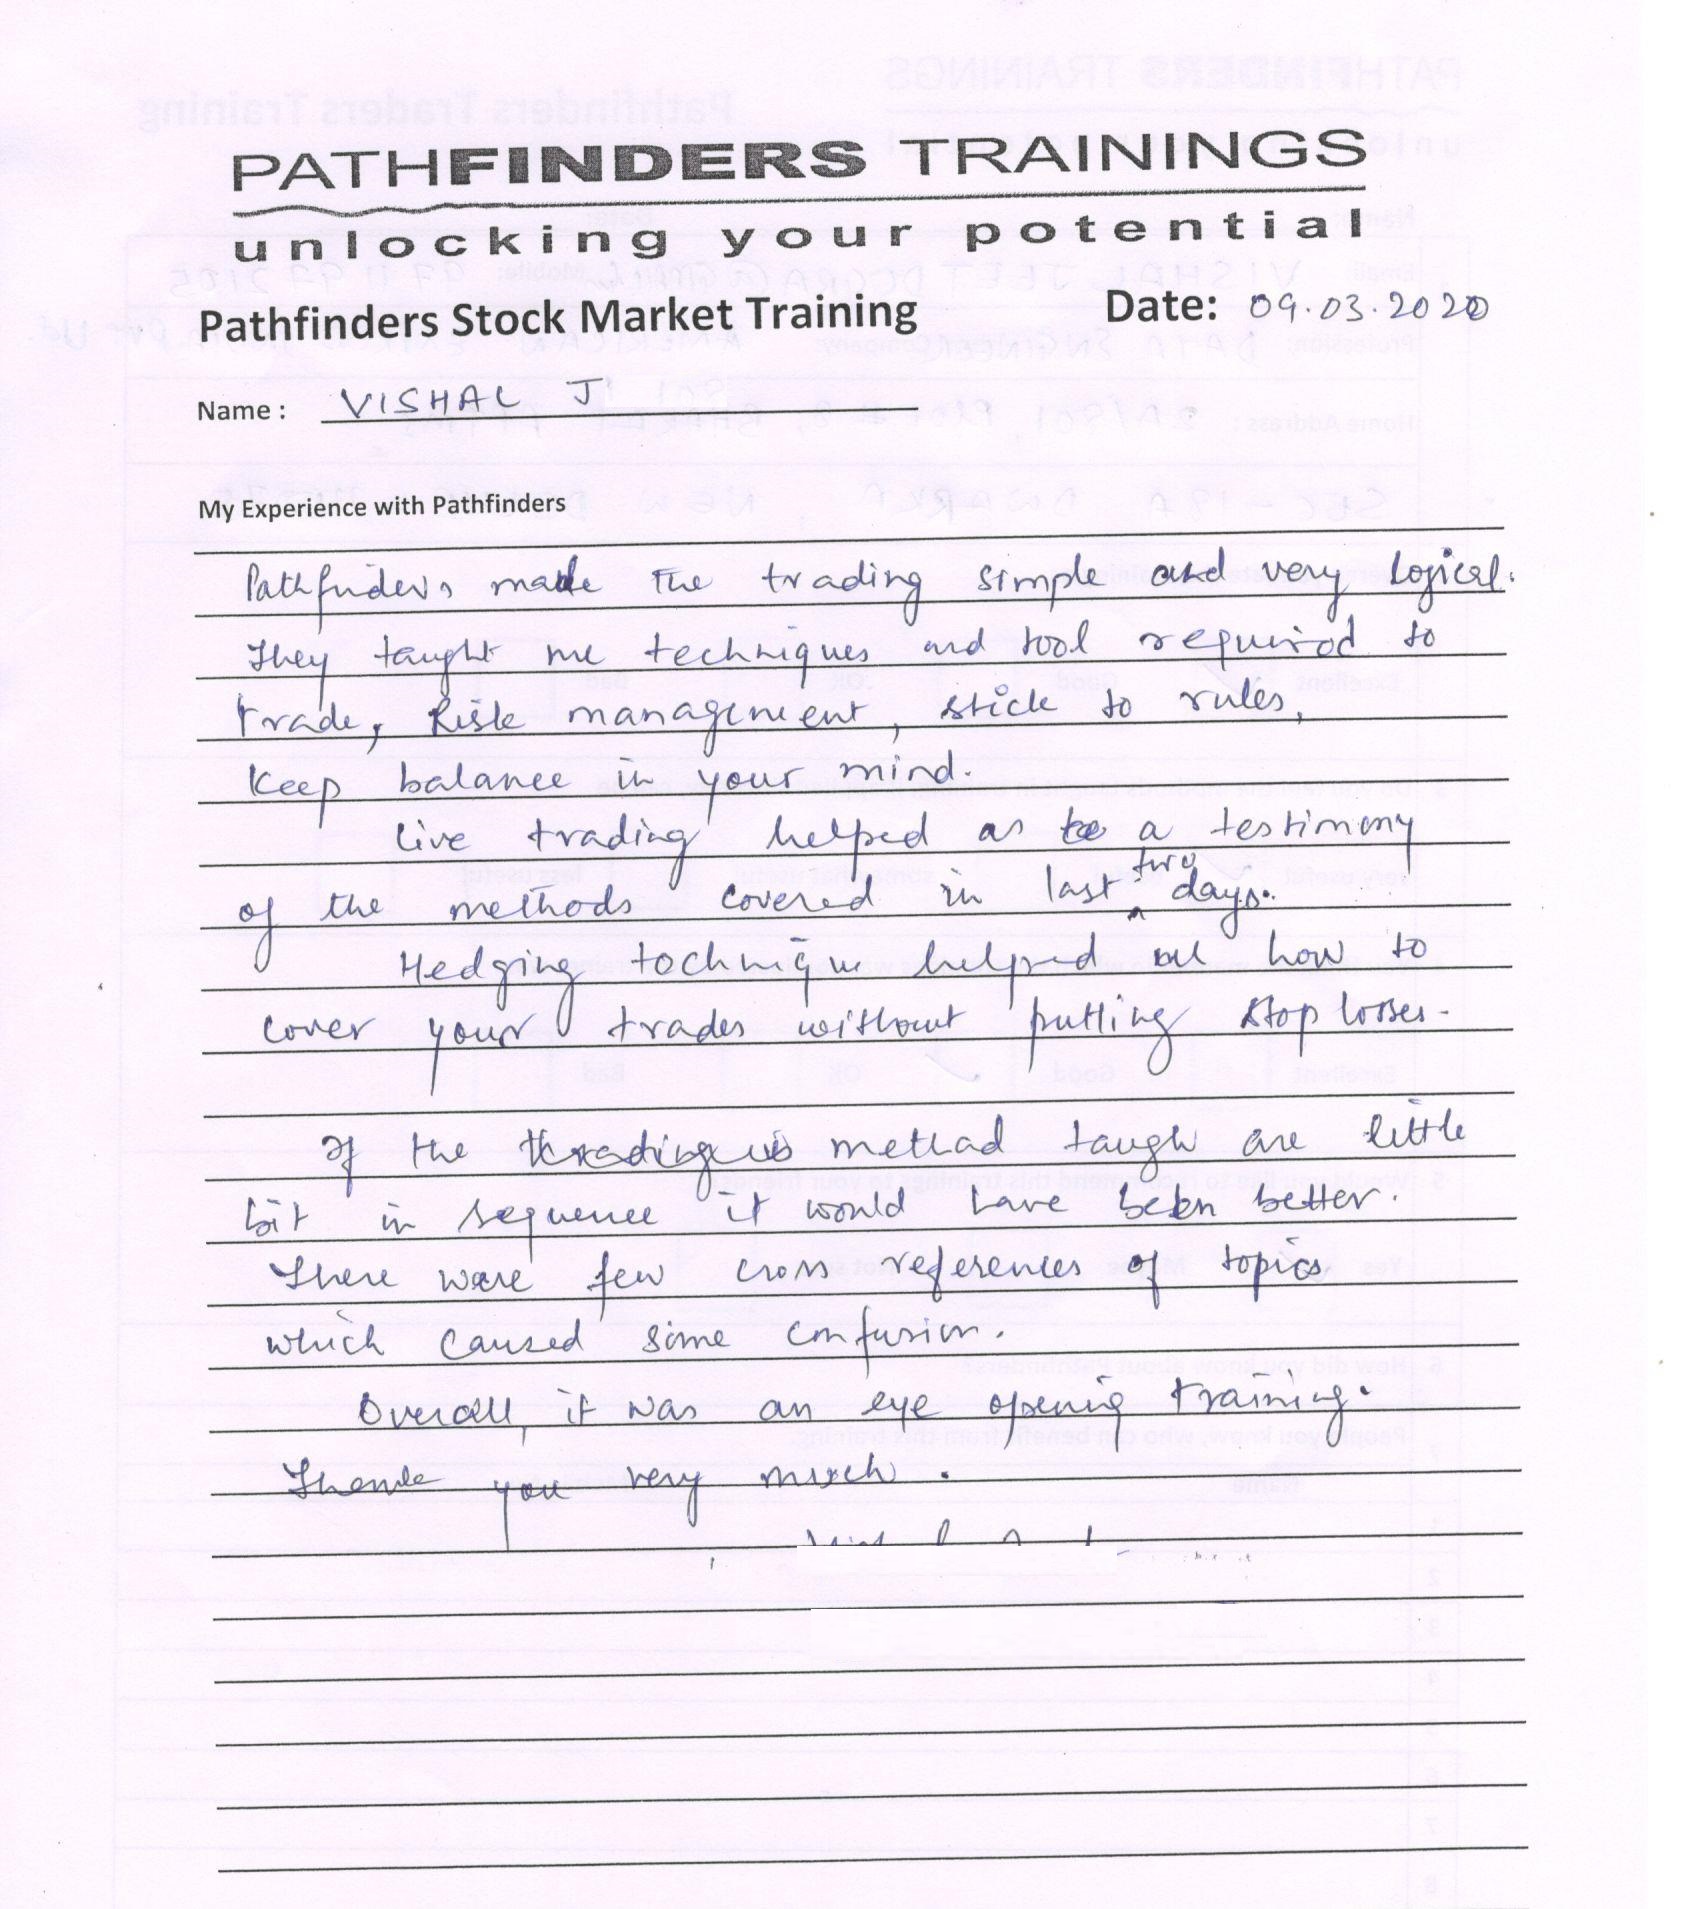 PATHFINDERS TRAININGS
unlocking your potential
Pathfinders Stock Market Training Date: 09.03.2020
Name : VISHAL J
My Experience with Pathfinders
Pathfinders made the trading simple and very logical.
They taught me techniques and tool required to
trade, Risk management, stick to rules,
keep balance in your mind.
Live trading helped as a testimony
of the methods covered in last two days.
Hedging technique helped me how to
cover your trades without putting stop losses.
If the method taugh are little
bit in sequence it would have been better.
There were few cross references of topics
which caused some confusion.
Overall, it was an eye opening training.
Thank you very much.